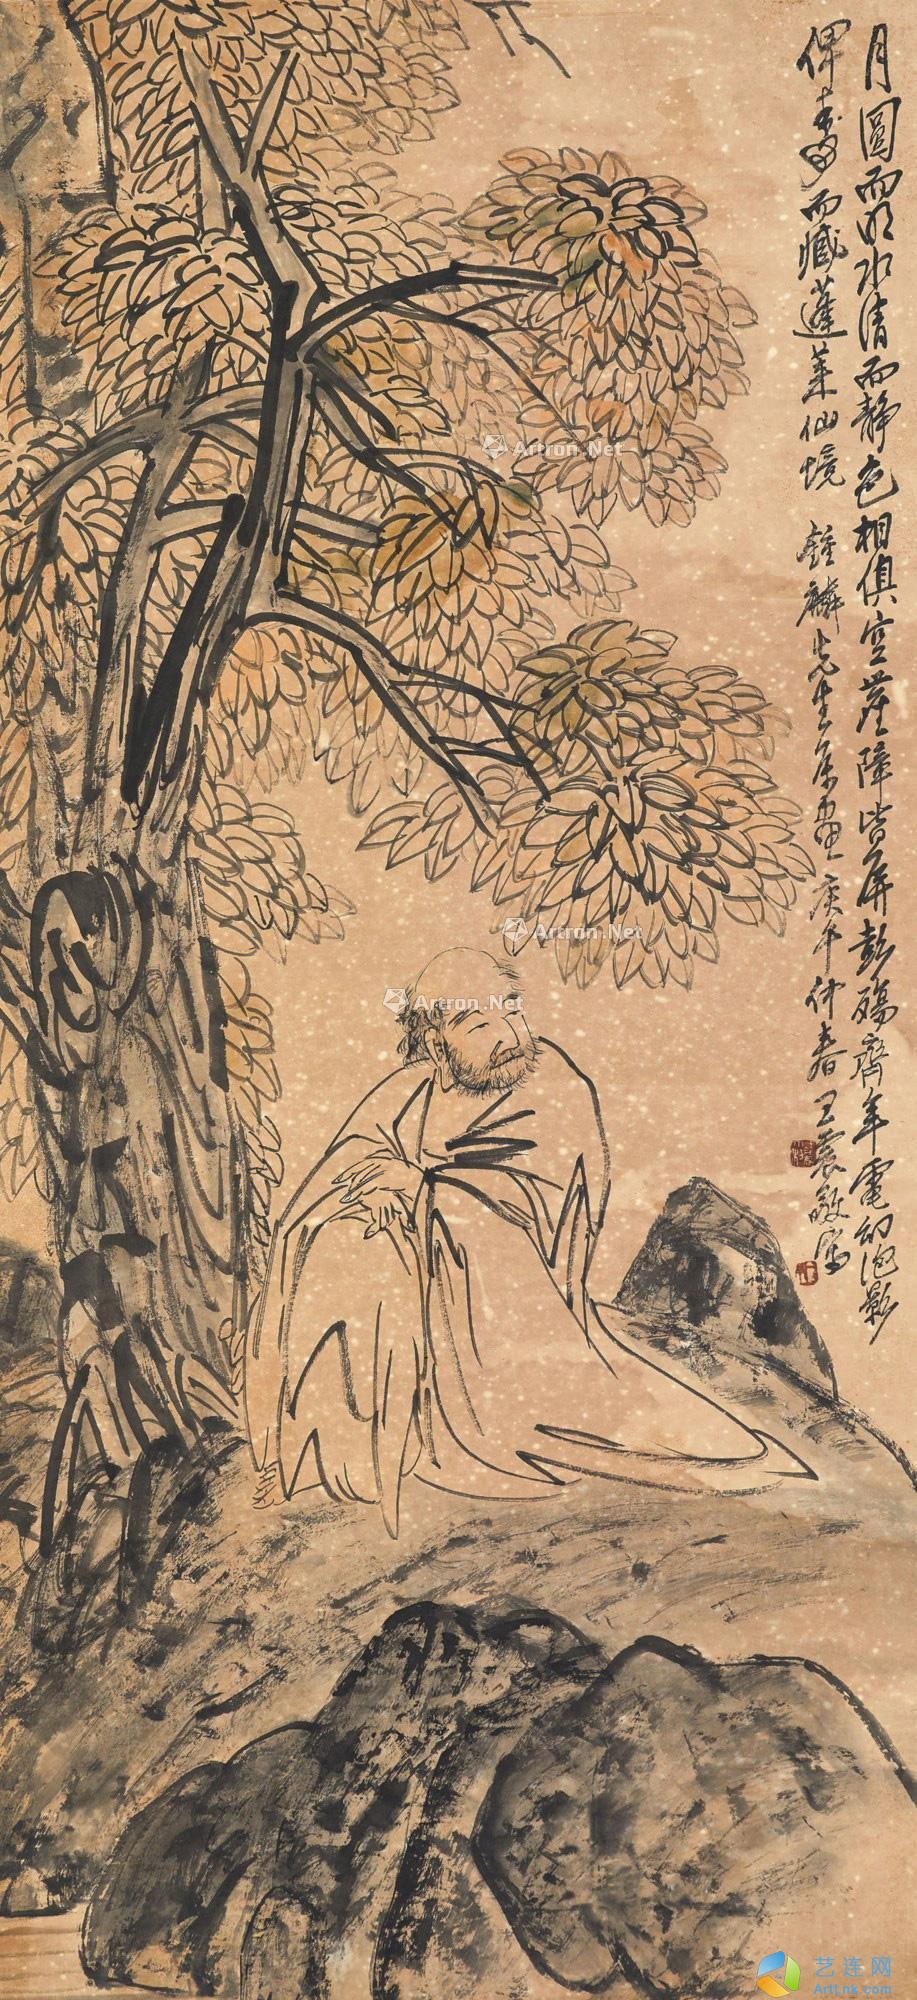 月圆而明水清而静色相俱空崖障皆屏彭殇齐年電幻泡影
俾壽而臧蓬莱仙境 鍾麟先生属画 庚午仲春 王震敬寫
Artron.Net
Artron.Net
Artron.Net
艺连网
ArtLnk.Com